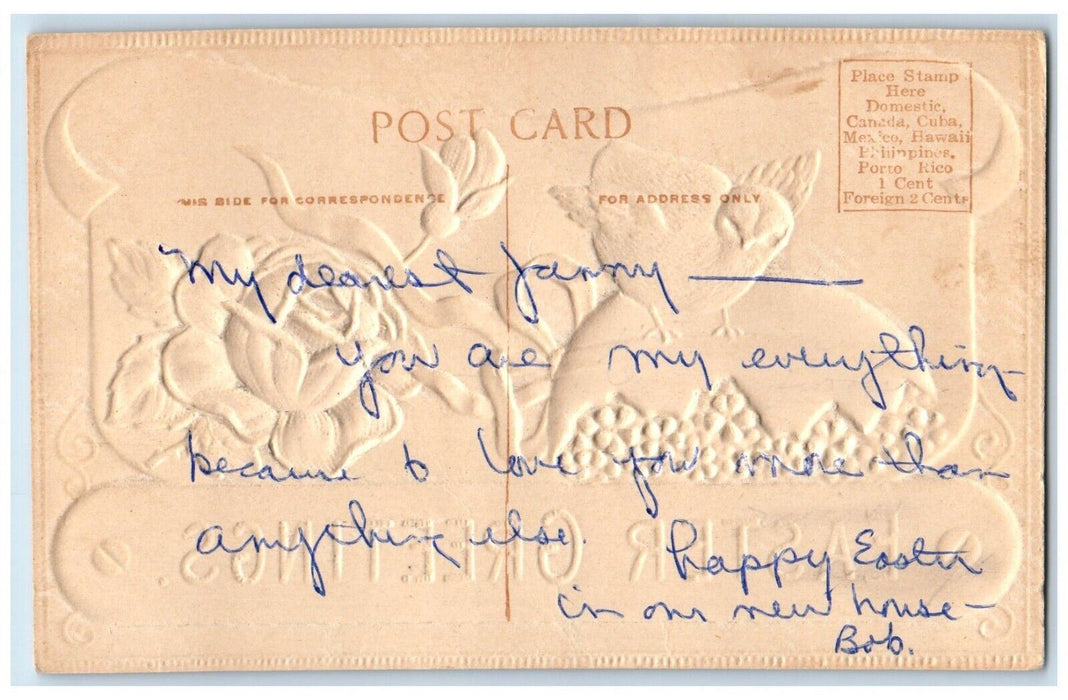 POST CARD
Place Stamp
Here
Domestic,
Canada, Cuba,
Mexico, Hawaii
Philippines,
Porto Rico
1 Cent
Foreign 2 Cents
THIS SIDE FOR CORRESPONDENCE
FOR ADDRESS ONLY
My dearest Janny —
you are my everything
because I love you more than
anything else.
Happy Easter
in our new house —
Bob.
EASTER GREETINGS.